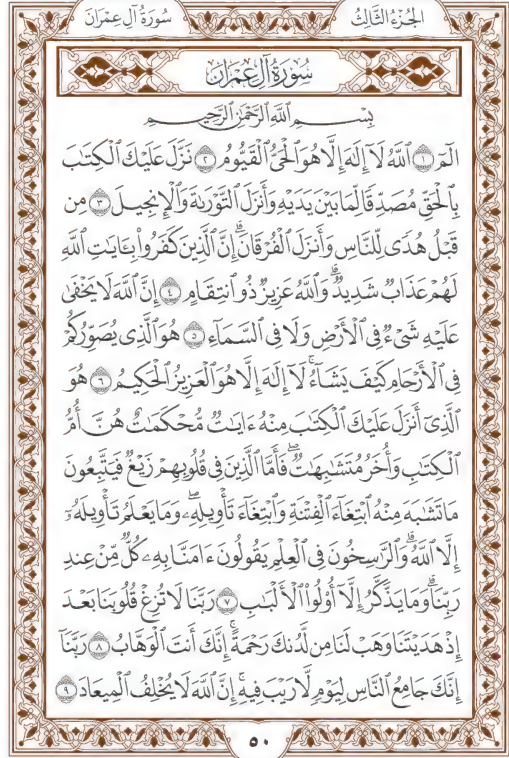 الجُزءُ الثَّالِثُ
سُورَةُ آلِ عِمۡرَانَ
سُورَةُ آلِ عِمۡرَانَ
بِسۡمِ ٱللَّهِ ٱلرَّحۡمَٰنِ ٱلرَّحِيمِ
الٓمٓ ١ ٱللَّهُ لَآ إِلَٰهَ إِلَّا هُوَ ٱلۡحَيُّ ٱلۡقَيُّومُ ٢ نَزَّلَ عَلَيۡكَ ٱلۡكِتَٰبَ
بِٱلۡحَقِّ مُصَدِّقٗا لِّمَا بَيۡنَ يَدَيۡهِ وَأَنزَلَ ٱلتَّوۡرَىٰةَ وَٱلۡإِنجِيلَ ٣ مِن
قَبۡلُ هُدٗى لِّلنَّاسِ وَأَنزَلَ ٱلۡفُرۡقَانَۗ إِنَّ ٱلَّذِينَ كَفَرُواْ بِـَٔايَٰتِ ٱللَّهِ
لَهُمۡ عَذَابٞ شَدِيدٞۗ وَٱللَّهُ عَزِيزٞ ذُو ٱنتِقَامٍ ٤ إِنَّ ٱللَّهَ لَا يَخۡفَىٰ
عَلَيۡهِ شَيۡءٞ فِي ٱلۡأَرۡضِ وَلَا فِي ٱلسَّمَآءِ ٥ هُوَ ٱلَّذِي يُصَوِّرُكُمۡ
فِي ٱلۡأَرۡحَامِ كَيۡفَ يَشَآءُۚ لَآ إِلَٰهَ إِلَّا هُوَ ٱلۡعَزِيزُ ٱلۡحَكِيمُ ٦ هُوَ
ٱلَّذِيٓ أَنزَلَ عَلَيۡكَ ٱلۡكِتَٰبَ مِنۡهُ ءَايَٰتٞ مُّحۡكَمَٰتٌ هُنَّ أُمُّ
ٱلۡكِتَٰبِ وَأُخَرُ مُتَشَٰبِهَٰتٞۖ فَأَمَّا ٱلَّذِينَ فِي قُلُوبِهِمۡ زَيۡغٞ فَيَتَّبِعُونَ
مَا تَشَٰبَهَ مِنۡهُ ٱبۡتِغَآءَ ٱلۡفِتۡنَةِ وَٱبۡتِغَآءَ تَأۡوِيلِهِۦۖ وَمَا يَعۡلَمُ تَأۡوِيلَهُۥٓ
إِلَّا ٱللَّهُۗ وَٱلرَّٰسِخُونَ فِي ٱلۡعِلۡمِ يَقُولُونَ ءَامَنَّا بِهِۦ كُلّٞ مِّنۡ عِندِ
رَبِّنَاۗ وَمَا يَذَّكَّرُ إِلَّآ أُوْلُواْ ٱلۡأَلۡبَٰبِ ٧ رَبَّنَا لَا تُزِغۡ قُلُوبَنَا بَعۡدَ
إِذۡ هَدَيۡتَنَا وَهَبۡ لَنَا مِن لَّدُنكَ رَحۡمَةًۚ إِنَّكَ أَنتَ ٱلۡوَهَّابُ ٨ رَبَّنَآ
إِنَّكَ جَامِعُ ٱلنَّاسِ لِيَوۡمٖ لَّا رَيۡبَ فِيهِۚ إِنَّ ٱللَّهَ لَا يُخۡلِفُ ٱلۡمِيعَادَ ٩
٥٠